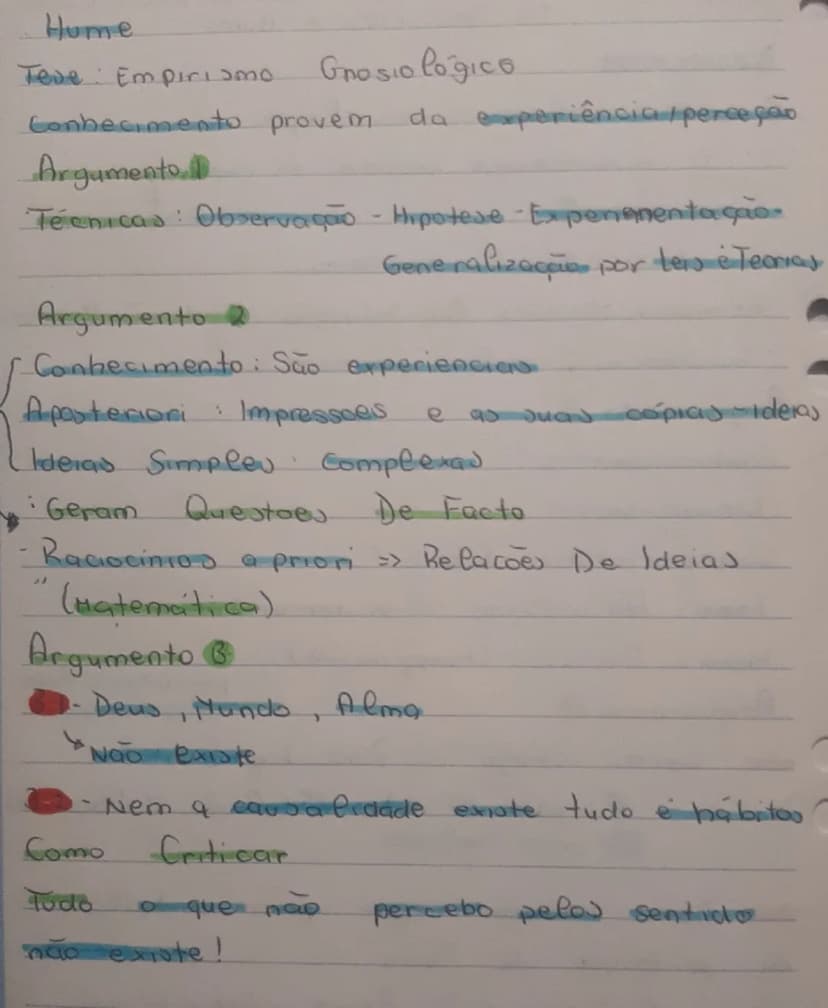 Hume
Tese: Empirismo Gnosiológico
Conhecimento provem da experiência/perceção
Argumento 1
Técnicas: Observação - Hipotese - Experimentação -
Generalização por leis e Teorias
Argumento 2
Conhecimento: São experiencias
Aposteriori: Impressoes e as suas cópias - ideias
Ideias Simples. Complexas
: Geram Questoes De Facto
- Raciocinios a priori => Relacões De Ideias
" (Matemática)
Argumento 3
- Deus, Mundo, Alma
↳ Não existe
- Nem a causalidade existe tudo é hábitos
Como Criticar
Tudo o que não percebo pelos sentido
não existe!